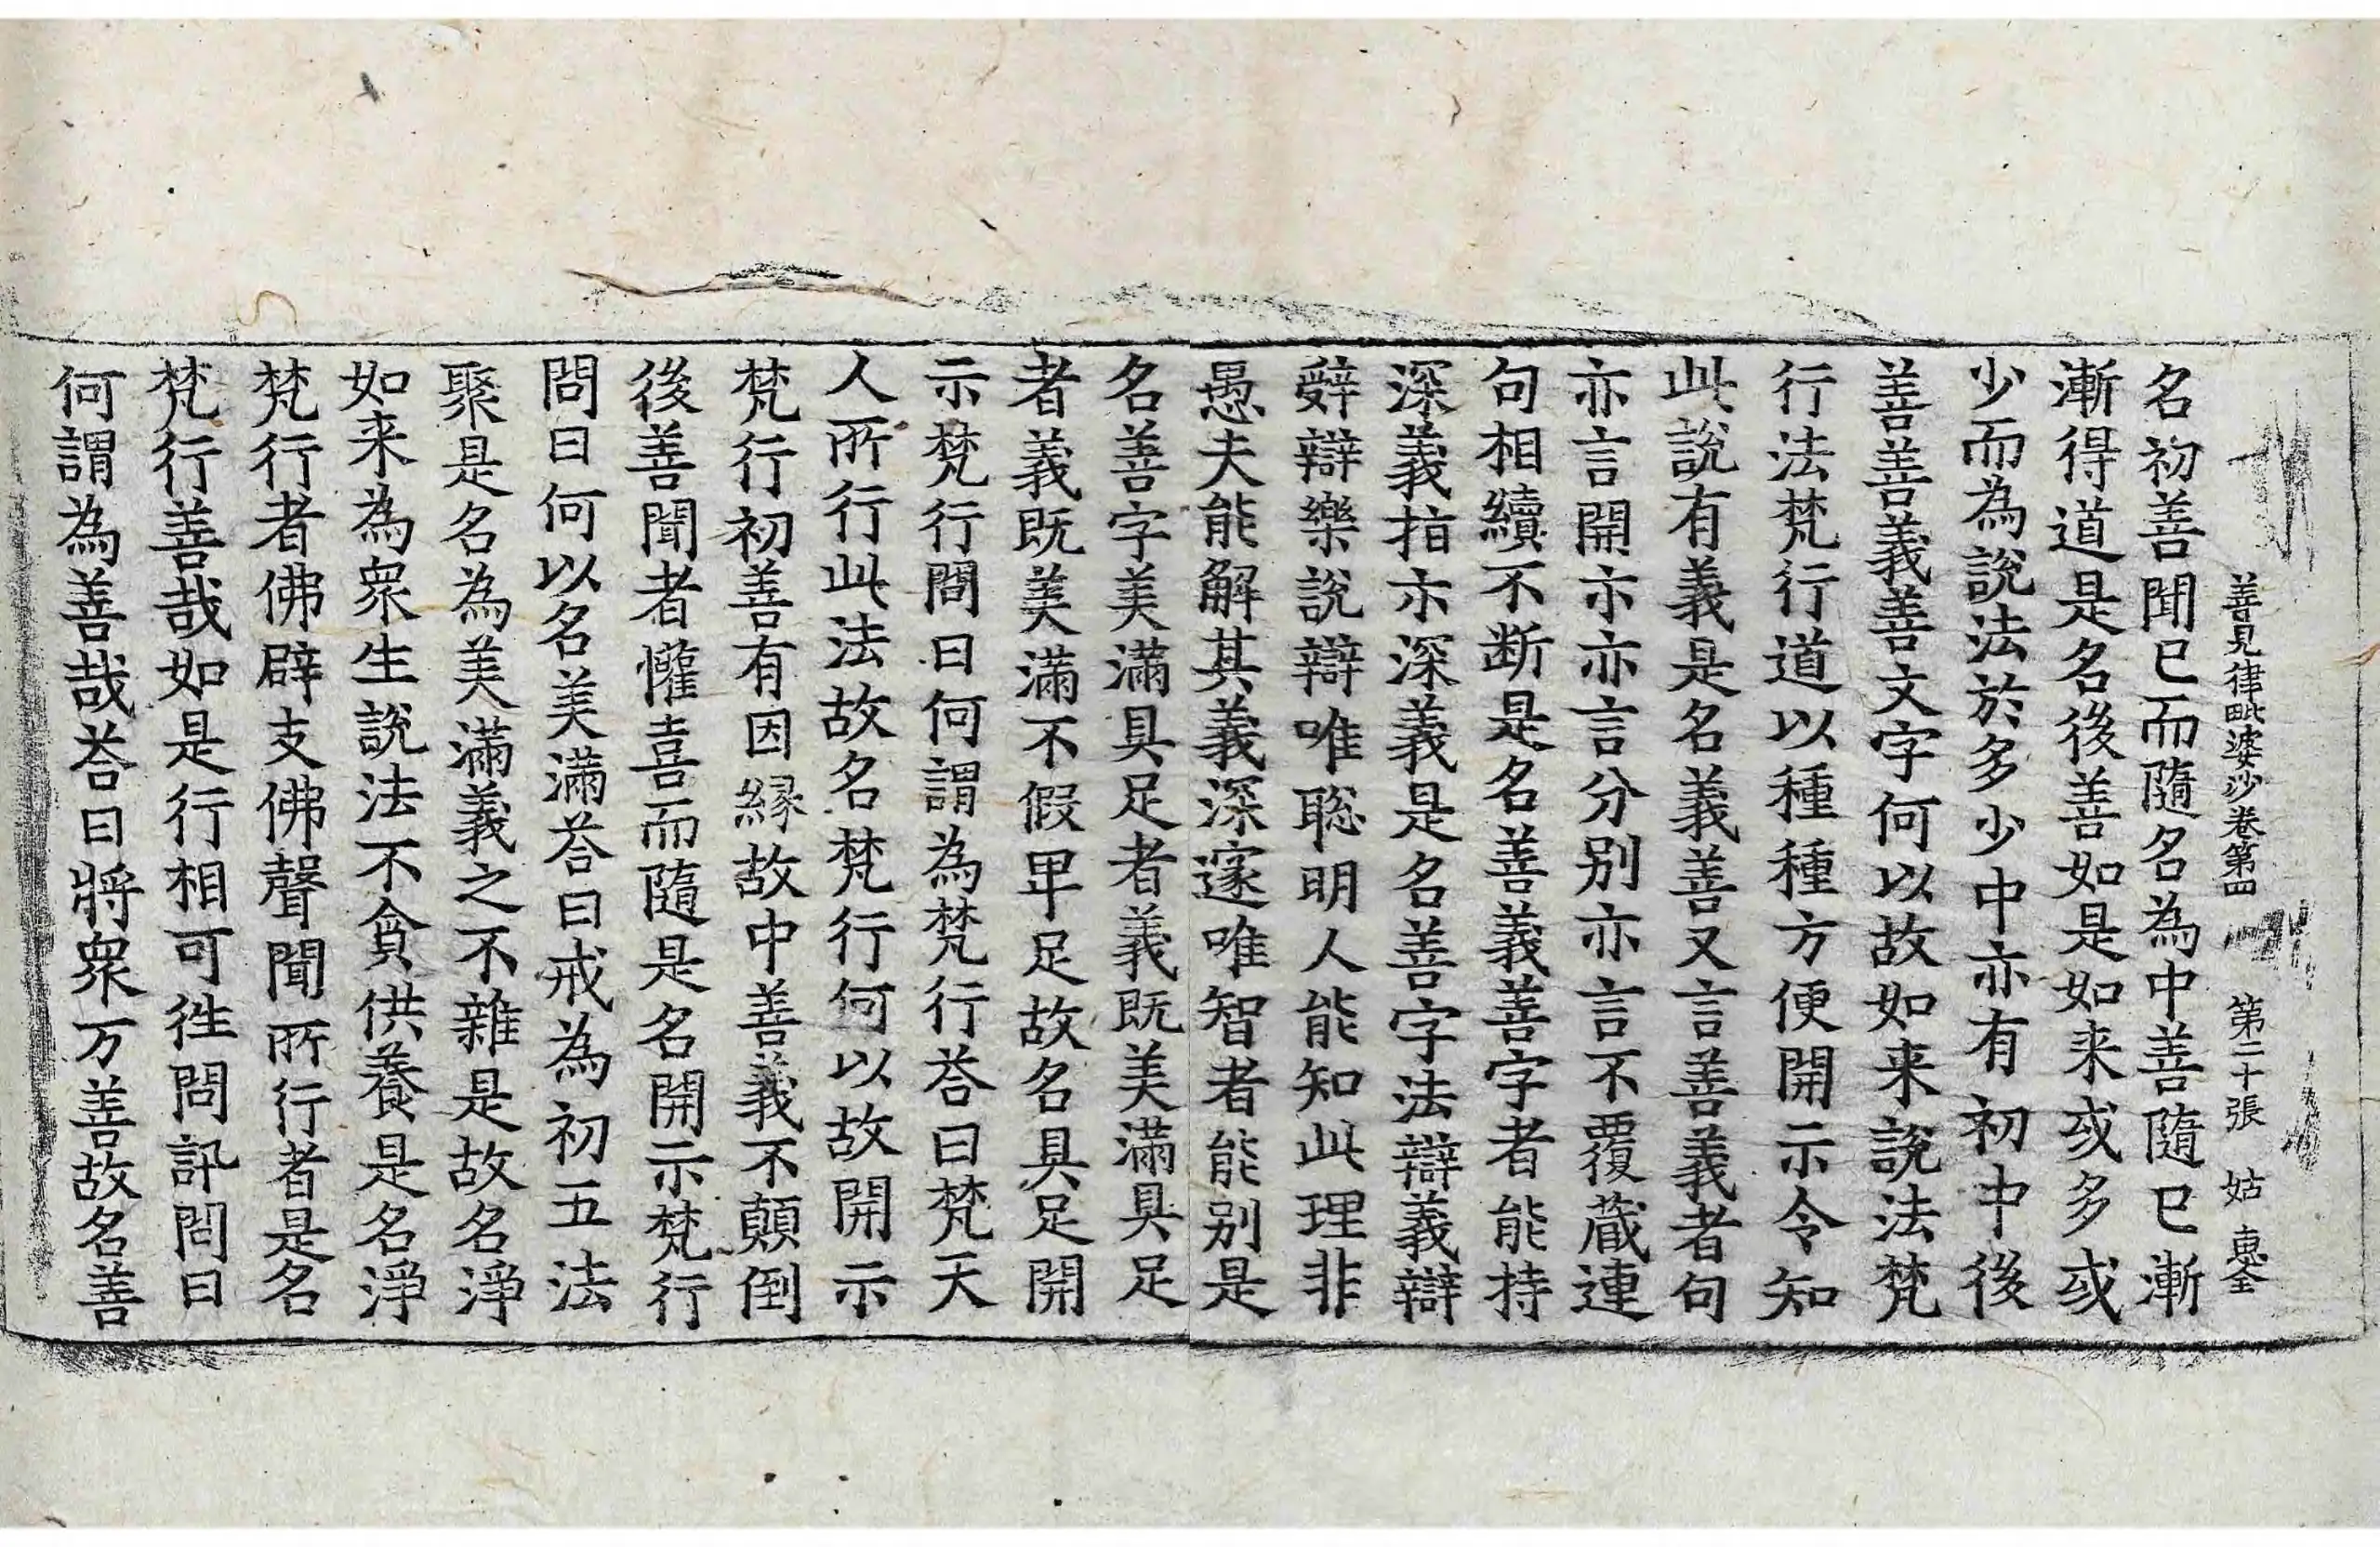 善見律毗婆沙卷第四　第二十張　姑　惠全
名初善聞已而隨名為中善隨已漸
漸得道是名後善如是如来或多或
少而為說法於多少中亦有初中後
善善義善文字何以故如来說法梵
行法梵行道以種種方便開示令知
此說有義是名義善又言善義者句
亦言開示亦言分別亦言不覆蔵連
句相續不断是名善義善字者能持
深義指示深義是名善字法辯義辯
辤辯樂說辯唯聡明人能知此理非
愚夫能解其義深邃唯智者能别是
名善字美滿具足者義既美滿具足
者義既美滿不假卑足故名具足開
示梵行問曰何謂為梵行荅曰梵天
人所行此法故名梵行何以故開示
梵行初善有因縁故中善義不顛倒
後善聞者懽喜而隨是名開示梵行
問曰何以名美滿荅曰戒為初五法
聚是名為美滿義之不雜是故名淨
如来為衆生說法不貪供養是名淨
梵行者佛辟支佛聲聞所行者是名
梵行善哉如是行相可徃問訊問曰
何謂為善哉荅曰將衆万善故名善